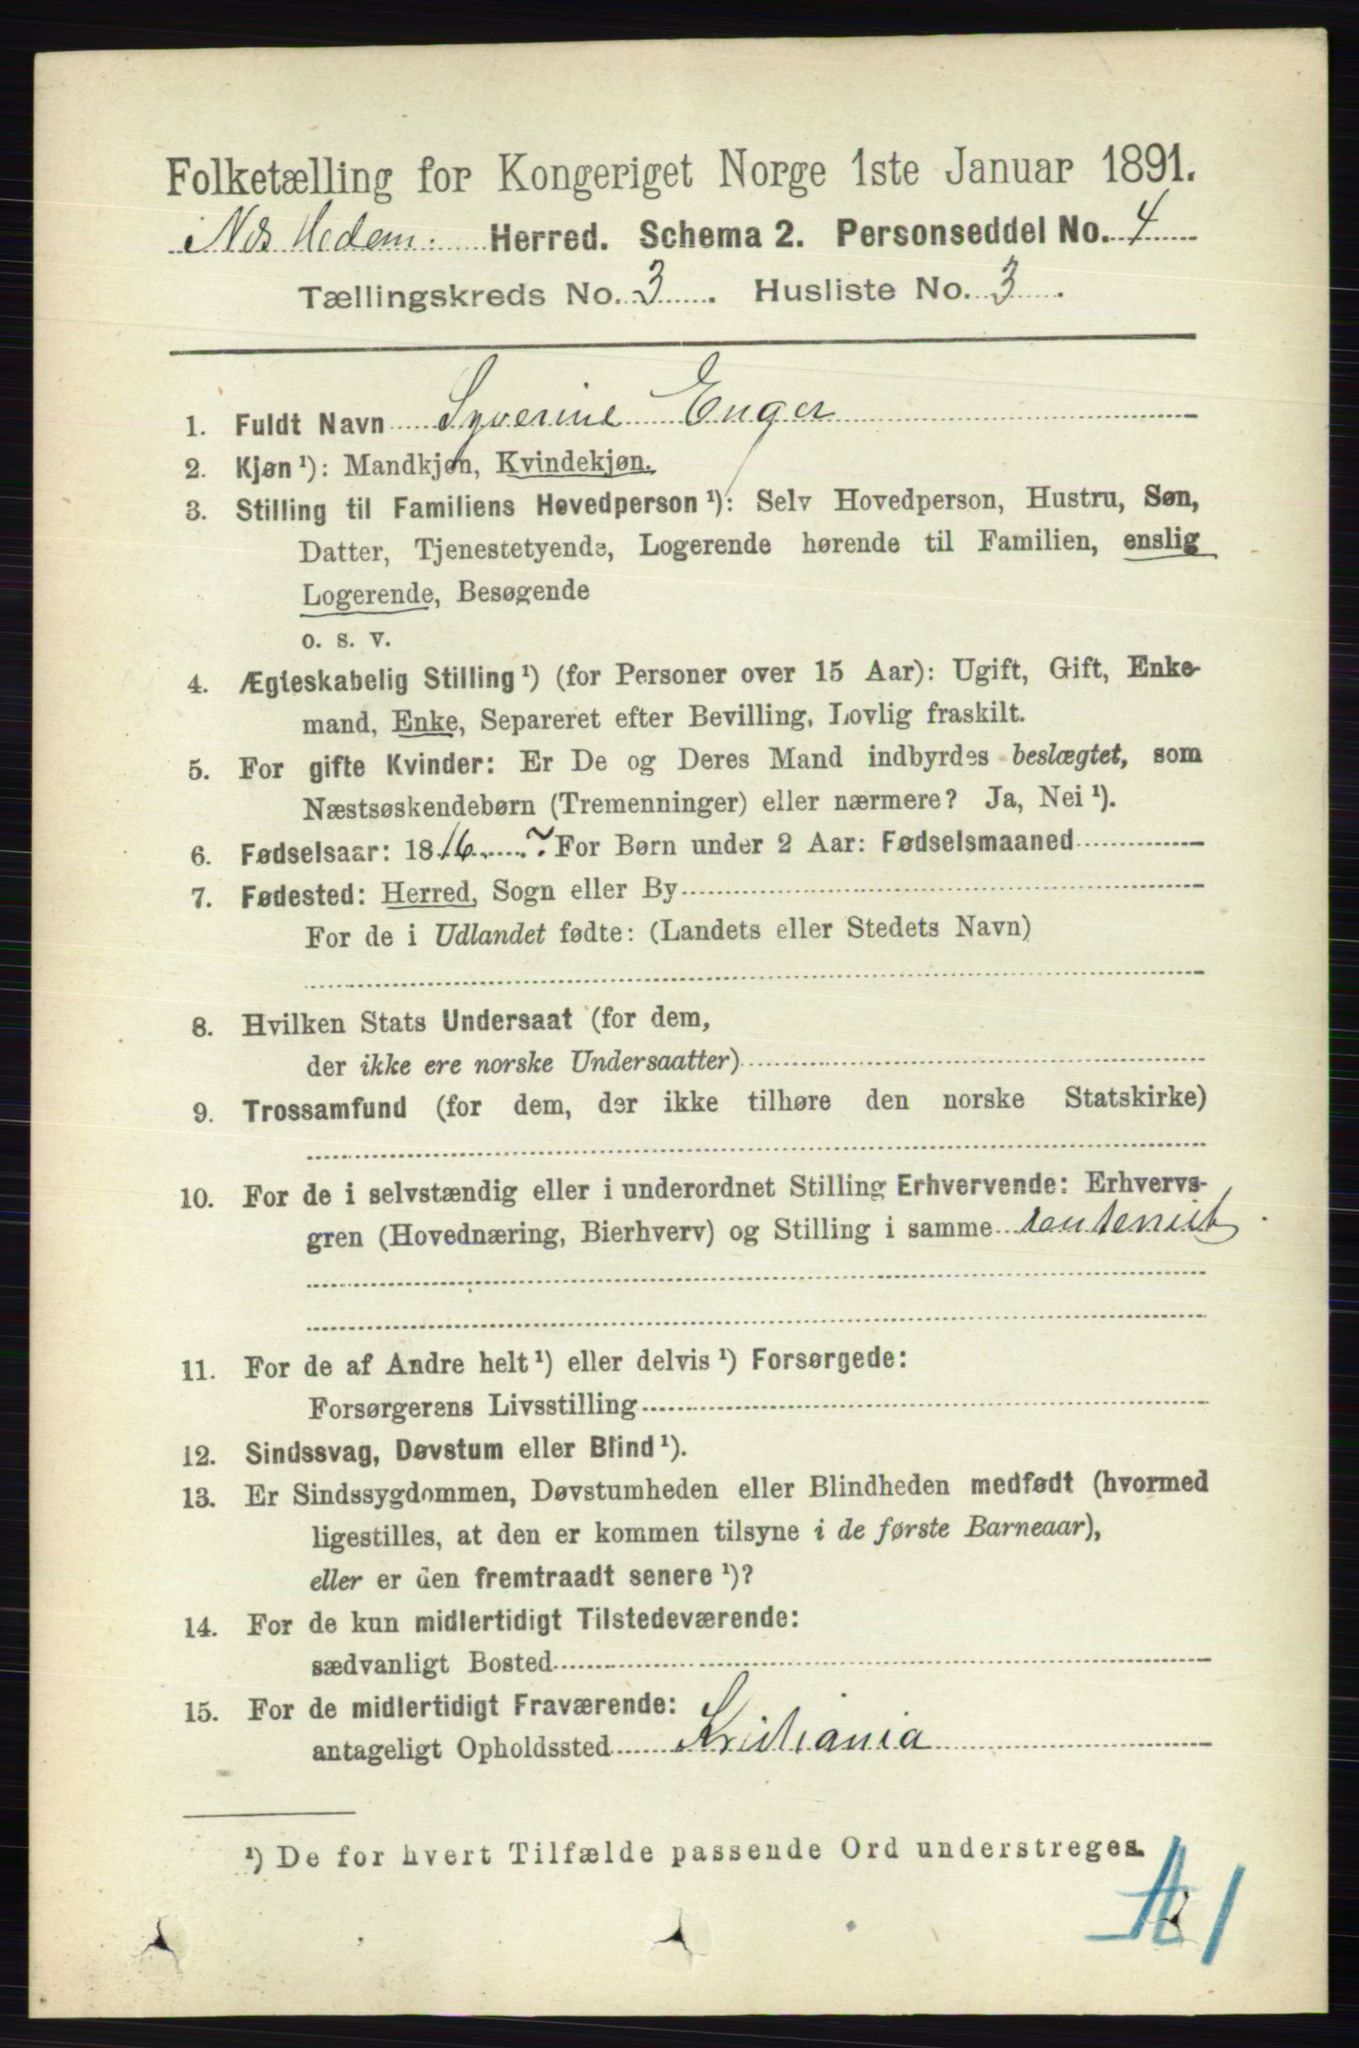 Folketælling for Kongeriget Norge 1ste Januar 1891.
Nes Hedem. Herred. Schema 2. Personseddel No. 4
Tællingskreds No. 3. Husliste No. 3.
1. Fuldt Navn Syverine Enger
2. Kjøn ¹): Mandkjøn, Kvindekjøn.
3. Stilling til Familiens Hovedperson ¹): Selv Hovedperson, Hustru, Søn,
Datter, Tjenestetyende, Logerende hørende til Familien, enslig
Logerende, Besøgende
o. s. v.
4. Ægteskabelig Stilling ¹) (for Personer over 15 Aar): Ugift, Gift, Enke-
mand, Enke, Separeret efter Bevilling, Lovlig fraskilt.
5. For gifte Kvinder: Er De og Deres Mand indbyrdes beslægtet, som
Næstsøskendebørn (Tremenninger) eller nærmere? Ja, Nei ¹).
6. Fødselsaar: 1816 ? For Børn under 2 Aar: Fødselsmaaned
7. Fødested: Herred, Sogn eller By
For de i Udlandet fødte: (Landets eller Stedets Navn)
8. Hvilken Stats Undersaat (for dem,
der ikke ere norske Undersaatter)
9. Trossamfund (for dem, der ikke tilhøre den norske Statskirke)
10. For de i selvstændig eller i underordnet Stilling Erhvervende: Erhvervs-
gren (Hovednæring, Bierhverv) og Stilling i samme rentenist
11. For de af Andre helt ¹) eller delvis ¹) Forsørgede:
Forsørgerens Livsstilling
12. Sindssvag, Døvstum eller Blind ¹).
13. Er Sindssygdommen, Døvstumheden eller Blindheden medfødt (hvormed
ligestilles, at den er kommen tilsyne i de første Barneaar),
eller er den fremtraadt senere ¹)?
14. For de kun midlertidigt Tilstedeværende:
sædvanligt Bosted
15. For de midlertidigt Fraværende:
antageligt Opholdssted Kristiania
¹) De for hvert Tilfælde passende Ord understreges.